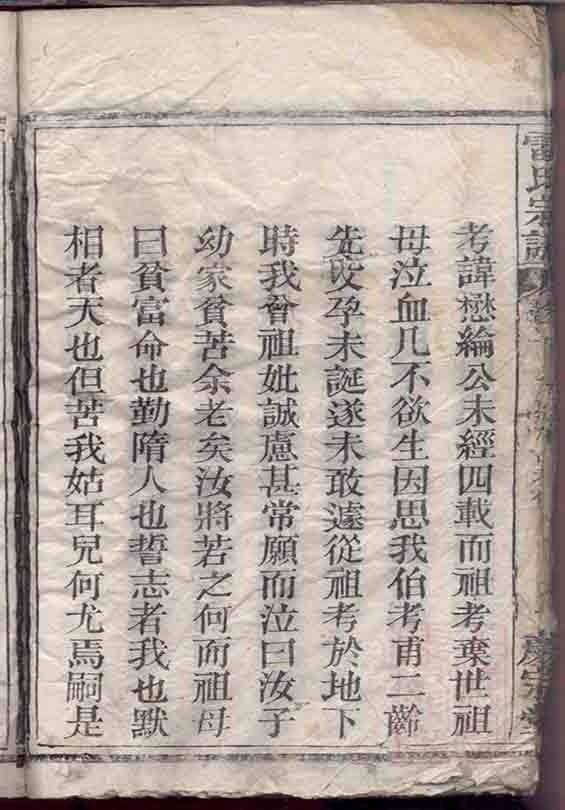 雷氏宗譜
考諱懋綸公未經四載而祖考棄世祖
母泣血几不欲生因思我伯考甫二齡
先㕑孕未誕遂未敢遽從祖考於地下
時我曾祖妣誠慮甚常願而泣曰汝子
幼家貧苦余老矣汝將若之何而祖母
曰貧富命也勤隋人也誓志者我也默
相者天也但苦我姑耳兒何尤焉嗣是